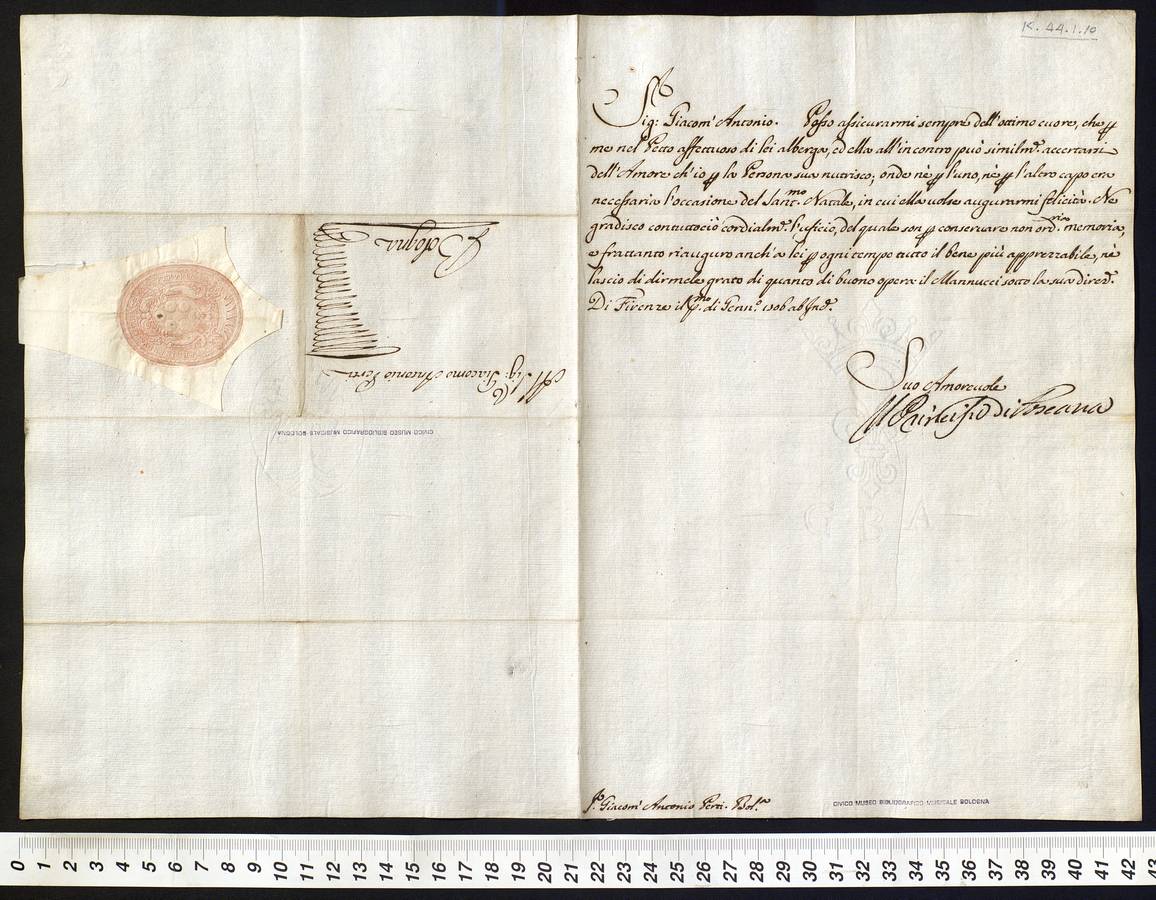 K. 44.1.10
Sig: Giacom' Antonio. Posso assicurarmi sempre dell'ottimo cuore, che p
me nel Petto affettuoso di lei alberga, ed ella all'incontro può similmᵉ. accertarsi
dell'Amore ch'io p la Persona sua nutrisco; onde nè p l'uno, nè p l'altro capo era
necessaria l'occasione del Santᵐᵒ. Natale, in cui ella volse augurarmi felicità. Ne
gradisco contuttociò cordialmᵉ. l'uficio, del quale son p conservare non ordʳⁱᵃ. memoria,
e frattanto riauguro anch'a lei p ogni tempo tutto il bene più apprezzabile, nè
lascio di dirmele grato di quanto di buono opera il Mannucci sotto la sua direzᵉ.
Di Firenze il pᵐᵒ. di Gennᵒ. 1706 ab Incᵉ.
Suo Amorevole
Il Principe di Toscana
Sʳ. Giacom' Antonio Perti. Bolᵃ
CIVICO MUSEO BIBLIOGRAFICO MUSICALE BOLOGNA
Al Sig: Giacomo Antonio Perti
Bologna
CIVICO MUSEO BIBLIOGRAFICO MUSICALE BOLOGNA
G B A
0 1 2 3 4 5 6 7 8 9 10 11 12 13 14 15 16 17 18 19 20 21 22 23 24 25 26 27 28 29 30 31 32 33 34 35 36 37 38 39 40 41 42 43